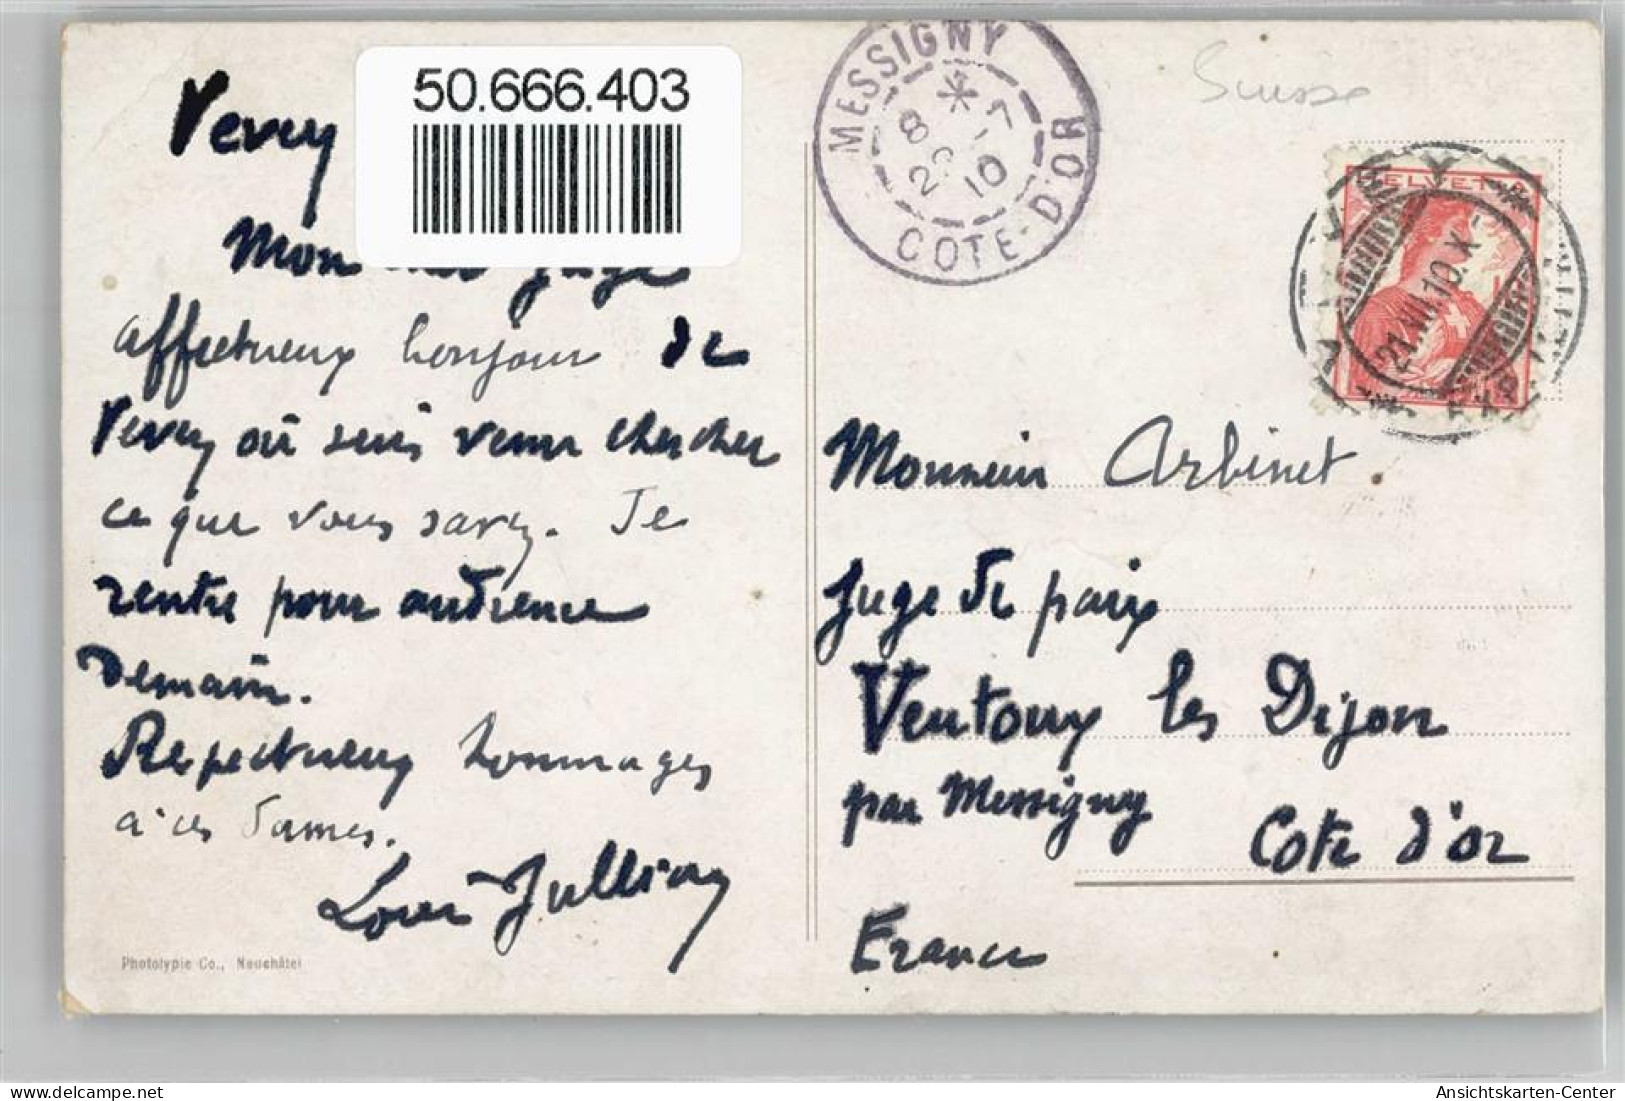 50.666.403
Vevey
Mon juge
affectueux bonjour de
Vevey où suis venu chercher
ce que vous savez. Je
rentre pour audience
Demain.
Respectueux hommages
à ces Dames.
Louis
Photolypie Co., Neuchâtel
MESSIGNY
8 * -7
10
COTE-D'OR
Suisse
HELVETIA
VEVEY
21.VII.10.X
Monsieur Arbinet.
Juge de paix
Ventoux les Dijon
par Messigny
Cote d'or
France
Ansichtskarten-Center